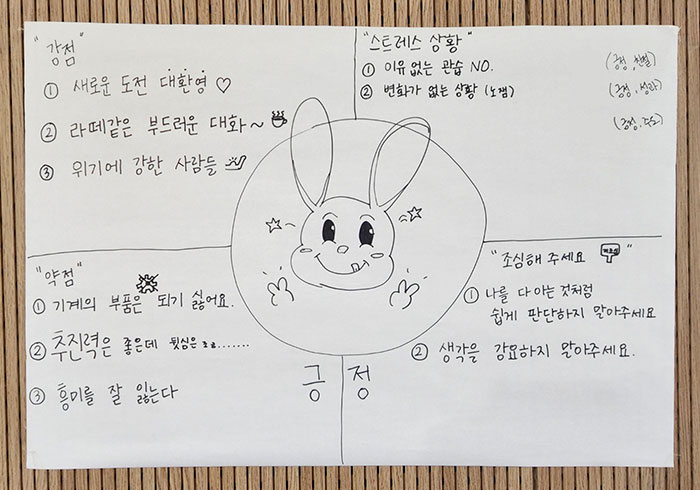 "강점"
① 새로운 도전 대환영 ♡
② 라떼같은 부드러운 대화~
③ 위기에 강한 사람들
"스트레스 상황"
① 이유없는 관습 NO.
② 변화가 없는 상황 (노잼)
(긍정,
(긍정,
(긍정,
"약점"
① 기계의 부품은 되기 싫어요.
② 추진력은 좋은데 뒷심은 조금.......
③ 흥미를 잘 잃는다
"조심해 주세요"
① 나를 다 아는 것처럼
쉽게 판단하지 말아주세요
② 생각을 강요하지 말아주세요.
긍정